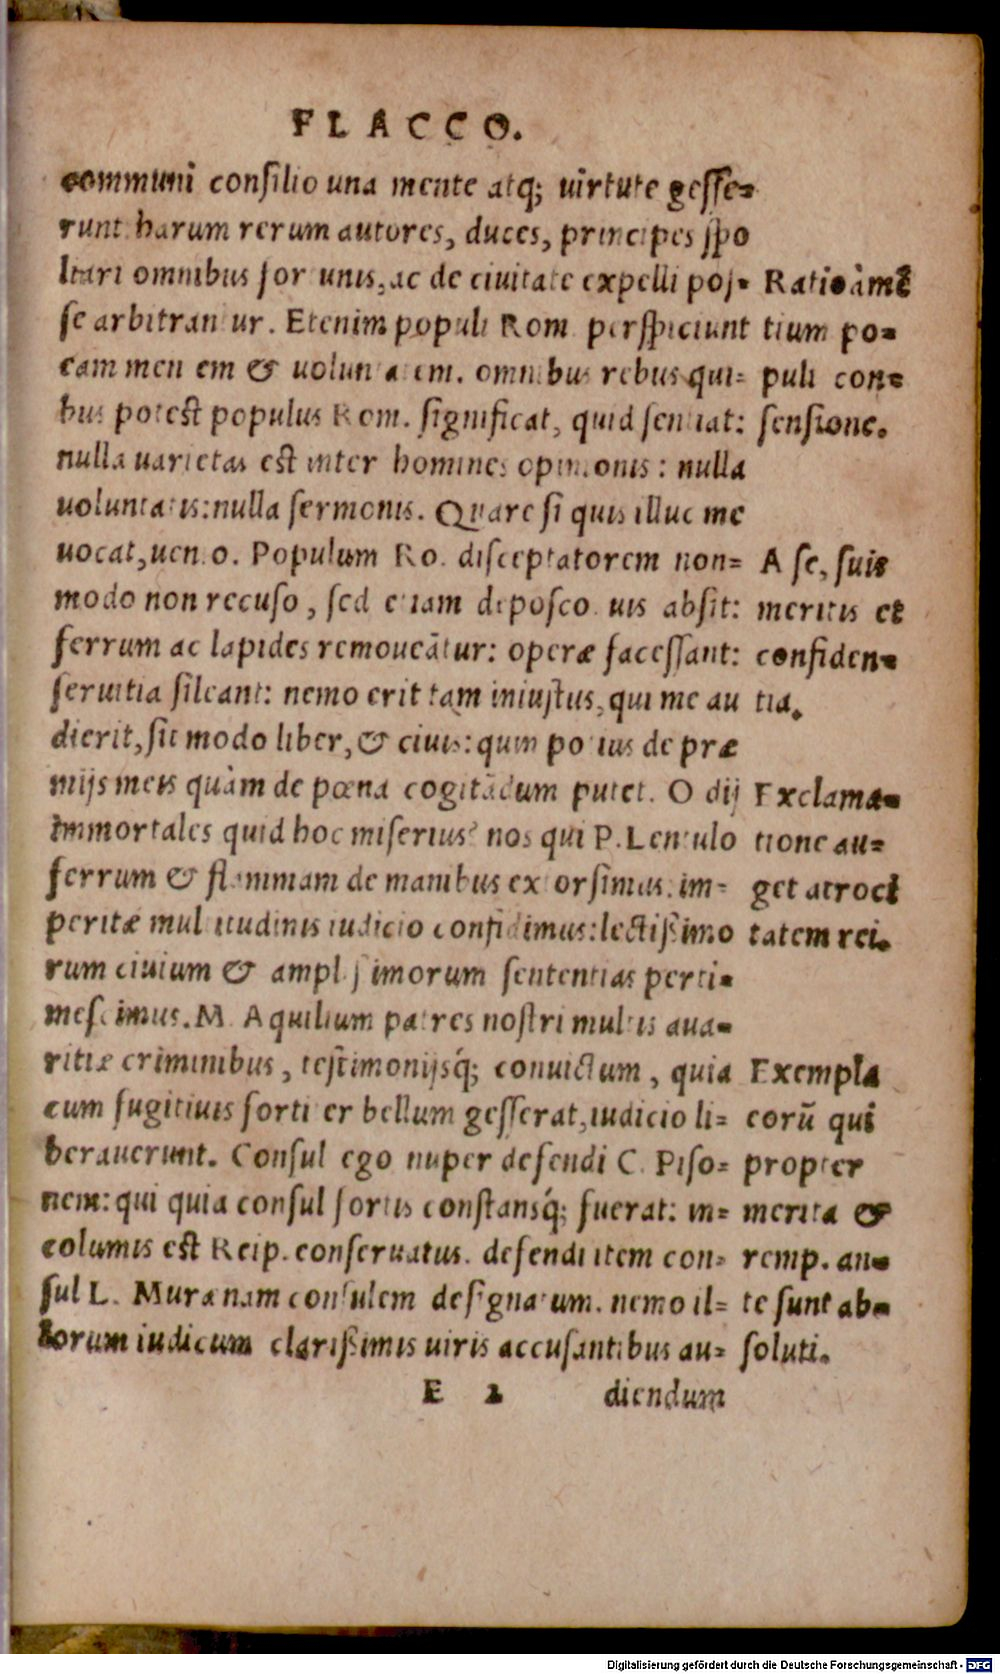 FLACCO.
communi consilio una mente atq; uirtute gesse=
runt harum rerum autores, duces, principes spo
liari omnibus fortunis, ac de ciuitate expelli pos=
se arbitrantur. Etenim populi Rom. perspiciunt
eam mentem & uoluntatem. omnibus rebus qui=
bus potest populus Rom. significat, quid sentiat:
nulla uarietas est inter homines opinionis: nulla
uoluntatis: nulla sermonis. Quare si quis illuc me
uocat, uenio. Populum Ro. disceptatorem non=
modo non recuso, sed etiam deposco. uis absit:
ferrum ac lapides remoueātur: operæ facessant:
seruitia sileant: nemo erit tam iniustus, qui me au
dierit, sit modo liber, & ciuis: quin potius de præ
mijs meis quàm de pœna cogitādum putet. O dij
immortales quid hoc miserius? nos qui P. Lentulo
ferrum & flammam de manibus extorsimus. im=
peritæ multitudinis iudicio confidimus: lectißimo
rum ciuium & amplissimorum sententias perti=
mescimus. M. Aquilium patres nostri multis aua=
ritiæ criminibus, testimonijsq́; conuictum, quia
cum fugitiuis fortiter bellum gesserat, iudicio li=
berauerunt. Consul ego nuper defendi C. Piso=
nem: qui quia consul fortis constansq́; fuerat: in=
columis est Reip. conseruatus. defendi item con=
sul L. Murænam consulem designatum. nemo il=
lorum iudicum clarißimis uiris accusantibus au=
E 2 diendum
Ratio à mē
tium po=
puli con=
sensione.
A se, suis
meritis et
confiden=
tia.
Exclama=
tione au=
get atroci
tatem rei.
Exempla
eorū qui
propter
merita &
remp. an=
te sunt ab=
soluti.
Digitalisierung gefördert durch die Deutsche Forschungsgemeinschaft - DFG